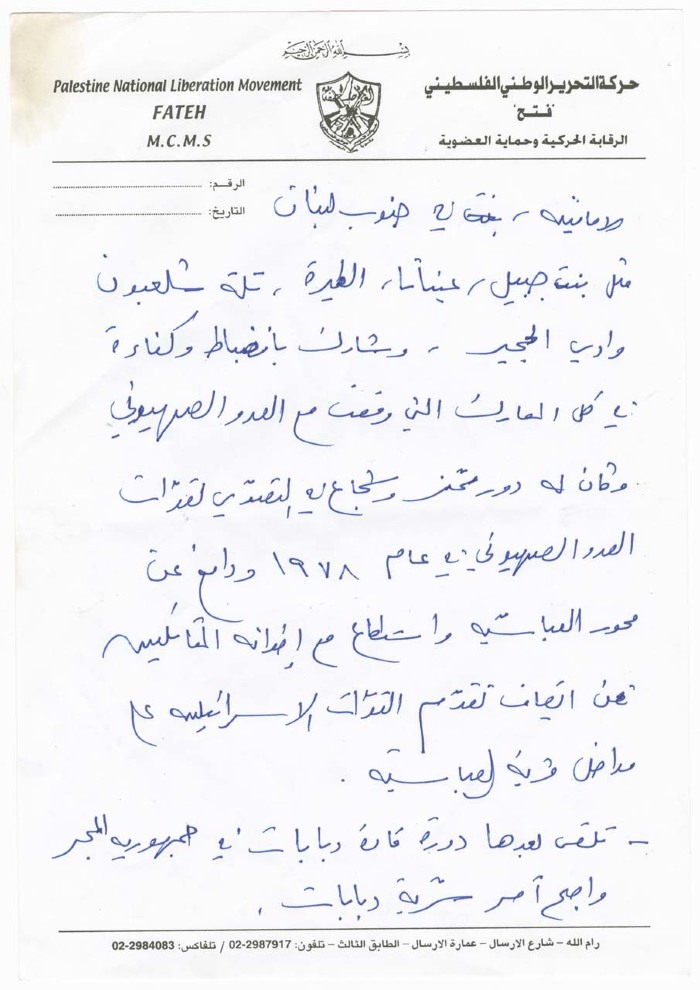 بسم الله الرحمن الرحيم
Palestine National Liberation Movement
FATEH
M.C.M.S
حركة التحرير الوطني الفلسطيني
"فتح"
الرقابة الحركية وحماية العضوية
الرقم:
التاريخ:
في جنوب لبنان
مثل بنت جبيل، عيناتا، الطيرة، تلة شلعبون
وادي الحجير، وشارك بانضباط وكفاءة
في كل المعارك التي وقعت مع العدو الصهيوني
وكان له دور مميز وشجاع في التصدي لقوات
العدو الصهيوني في عام ١٩٧٨ ودافع عن
محور العباسية واستطاع مع إخوانه المقاتلين
من ايقاف تقدم القوات الاسرائيلية على
مداخل قرية العباسية.
- تلقى بعدها دورة قادة دبابات في جمهورية المجر
واصبح آمر سرية دبابات.
رام الله – شارع الارسال – عمارة الارسال – الطابق الثالث – تلفون: 2987917-02 / تلفاكس: 2984083-02